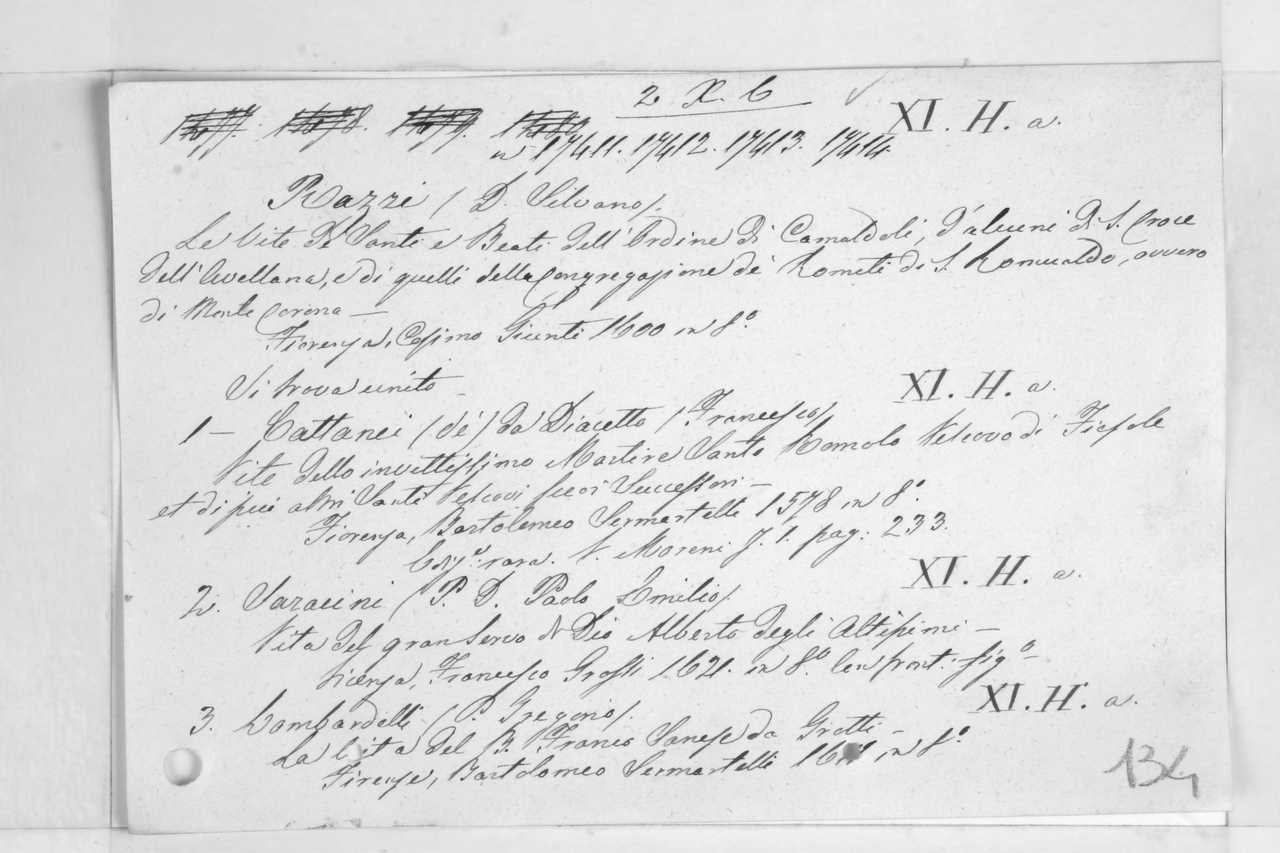 2. X. 6
XI. H. a.
n 17411. 17412. 17413. 17414
Razzi (D. Silvano).
Le Vite de Santi e Beati dell'Ordine di Camaldoli, d'alcuni di S. Croce
dell'Avellana, e di quelli della Congregazione de' Romiti di S. Romualdo, ovvero
di Monte Corona —
Fiorenza, Cosimo Giunti 1600 in 8º.
Si trova unito —
XI. H. a.
1 — Cattanei (de') da Diacetto (Francesco)
Vite dello invittissimo Martire Santo Romolo Vescovo di Fiesole
et di più altri Santi Vescovi suoi Successori —
Fiorenza, Bartolomeo Sermartelli 1578 in 8º.
Ediz.º rara. V. Moreni T. 1. pag. 233.
XI. H. a.
2. Saracini (P. D. Paolo Emilio)
Vita del gran Servo di Dio Alberto degli Altissimi —
Vicenza, Francesco Grossi 1621. in 8º. Con front. figº —
XI. H. a.
3. Lombardelli (P. Gregorio).
La Vita del B. Franco Sanese da Grotti —
Firenze, Bartolomeo Sermartelli in 8º.
134